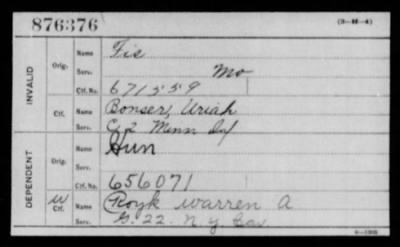 876376
INVALID
Orig. Name Fis
Serv. Mo
Ctf. No. 671559
Ctf. Name Bonser, Uriah
Serv. C, 2 Minn Inf
DEPENDENT
Orig. Name Hun
Serv.
Ctf. No. 656071
W Ctf. Name Royk Warren A
Serv. G. 22. N Y Cav